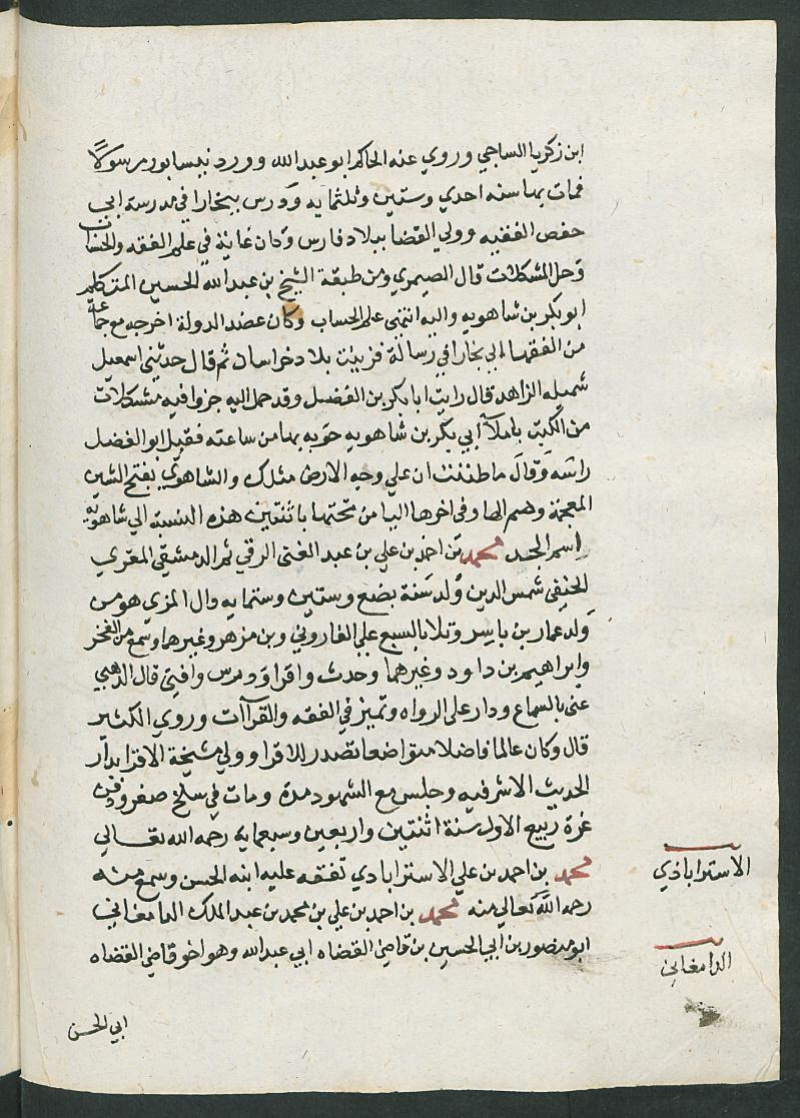 ابن زكريا الساجي وروي عنه الحاكم ابو عبد الله وورد نيسابور مرسولاً
فمات بها سنه احدي وستين وثلثمايه ودرس ببخارا في مدرسة ابي
حفص الفقيه وولي القضا ببلاد فارس وكان غاية في علم الفقه والحساب
وحل المشكلات قال الصيمري ومن طبقة الشيخ بن عبد الله الحسين المتكلم
ابو بكر بن شاهويه واليه انتهي علم الحساب وكان عضد الدولة اخرجه مع جماعة
من الفقها الي بخارا في رسالة بلاد خراسان ثم قال حدثني اسمعيل
الزاهد قال رايت ابا بكر بن الفضل وقد حمل اليه جزوا فيه مشكلات
من الكتب باملآ ابي بكر بن شاهويه بها من ساعته فقبل ابو الفضل
راسه وقال ما ظننت ان علي وجه الارض مثلك والشاهوي بفتح الشين
المعجمة وضم الها وفي اخرها اليا من تحتها باثنتين هذه النسبة الي شاهويه
اسم الجد محمد بن احمد بن علي بن عبد الغني الرقي ثم الدمشقي المقري
الحنفي شمس الدين ولد سنة بضع وستين وستمايه وال المزي هو من
ولد عمار بن ياسر وتلا بالسبع علي الفاروثي وبن مزهر وغيرهما وسمع من الفخر
وابراهيم بن داود وغيرهما وحدث واقرا ودرس وافتي قال الذهبي
عني بالسماع ودار علي الرواه وتميز في الفقه والقرآات وروي الكثير
قال وكان عالما فاضلا متواضعا تصدر للاقرا وولي مشيخة الاقرا بدار
الحديث الاشرفيه وجلس مع الشهود مدة ومات في سلخ صفر ودفن
غرة ربيع الاول سنة اثنتين واربعين وسبعمايه رحمه الله تعالي
محمد بن احمد بن علي الاسترابادي تفقه عليه ابنه الحسن وسمع منه
رحمه الله تعالي منه محمد بن احمد بن علي بن محمد بن عبد الملك الدامغاني
ابو منصور بن ابي الحسين بن قاضي القضاه ابي عبد الله وهو اخو قاضي القضاه
الاسترابادي
الدامغاني
ابي الحسن